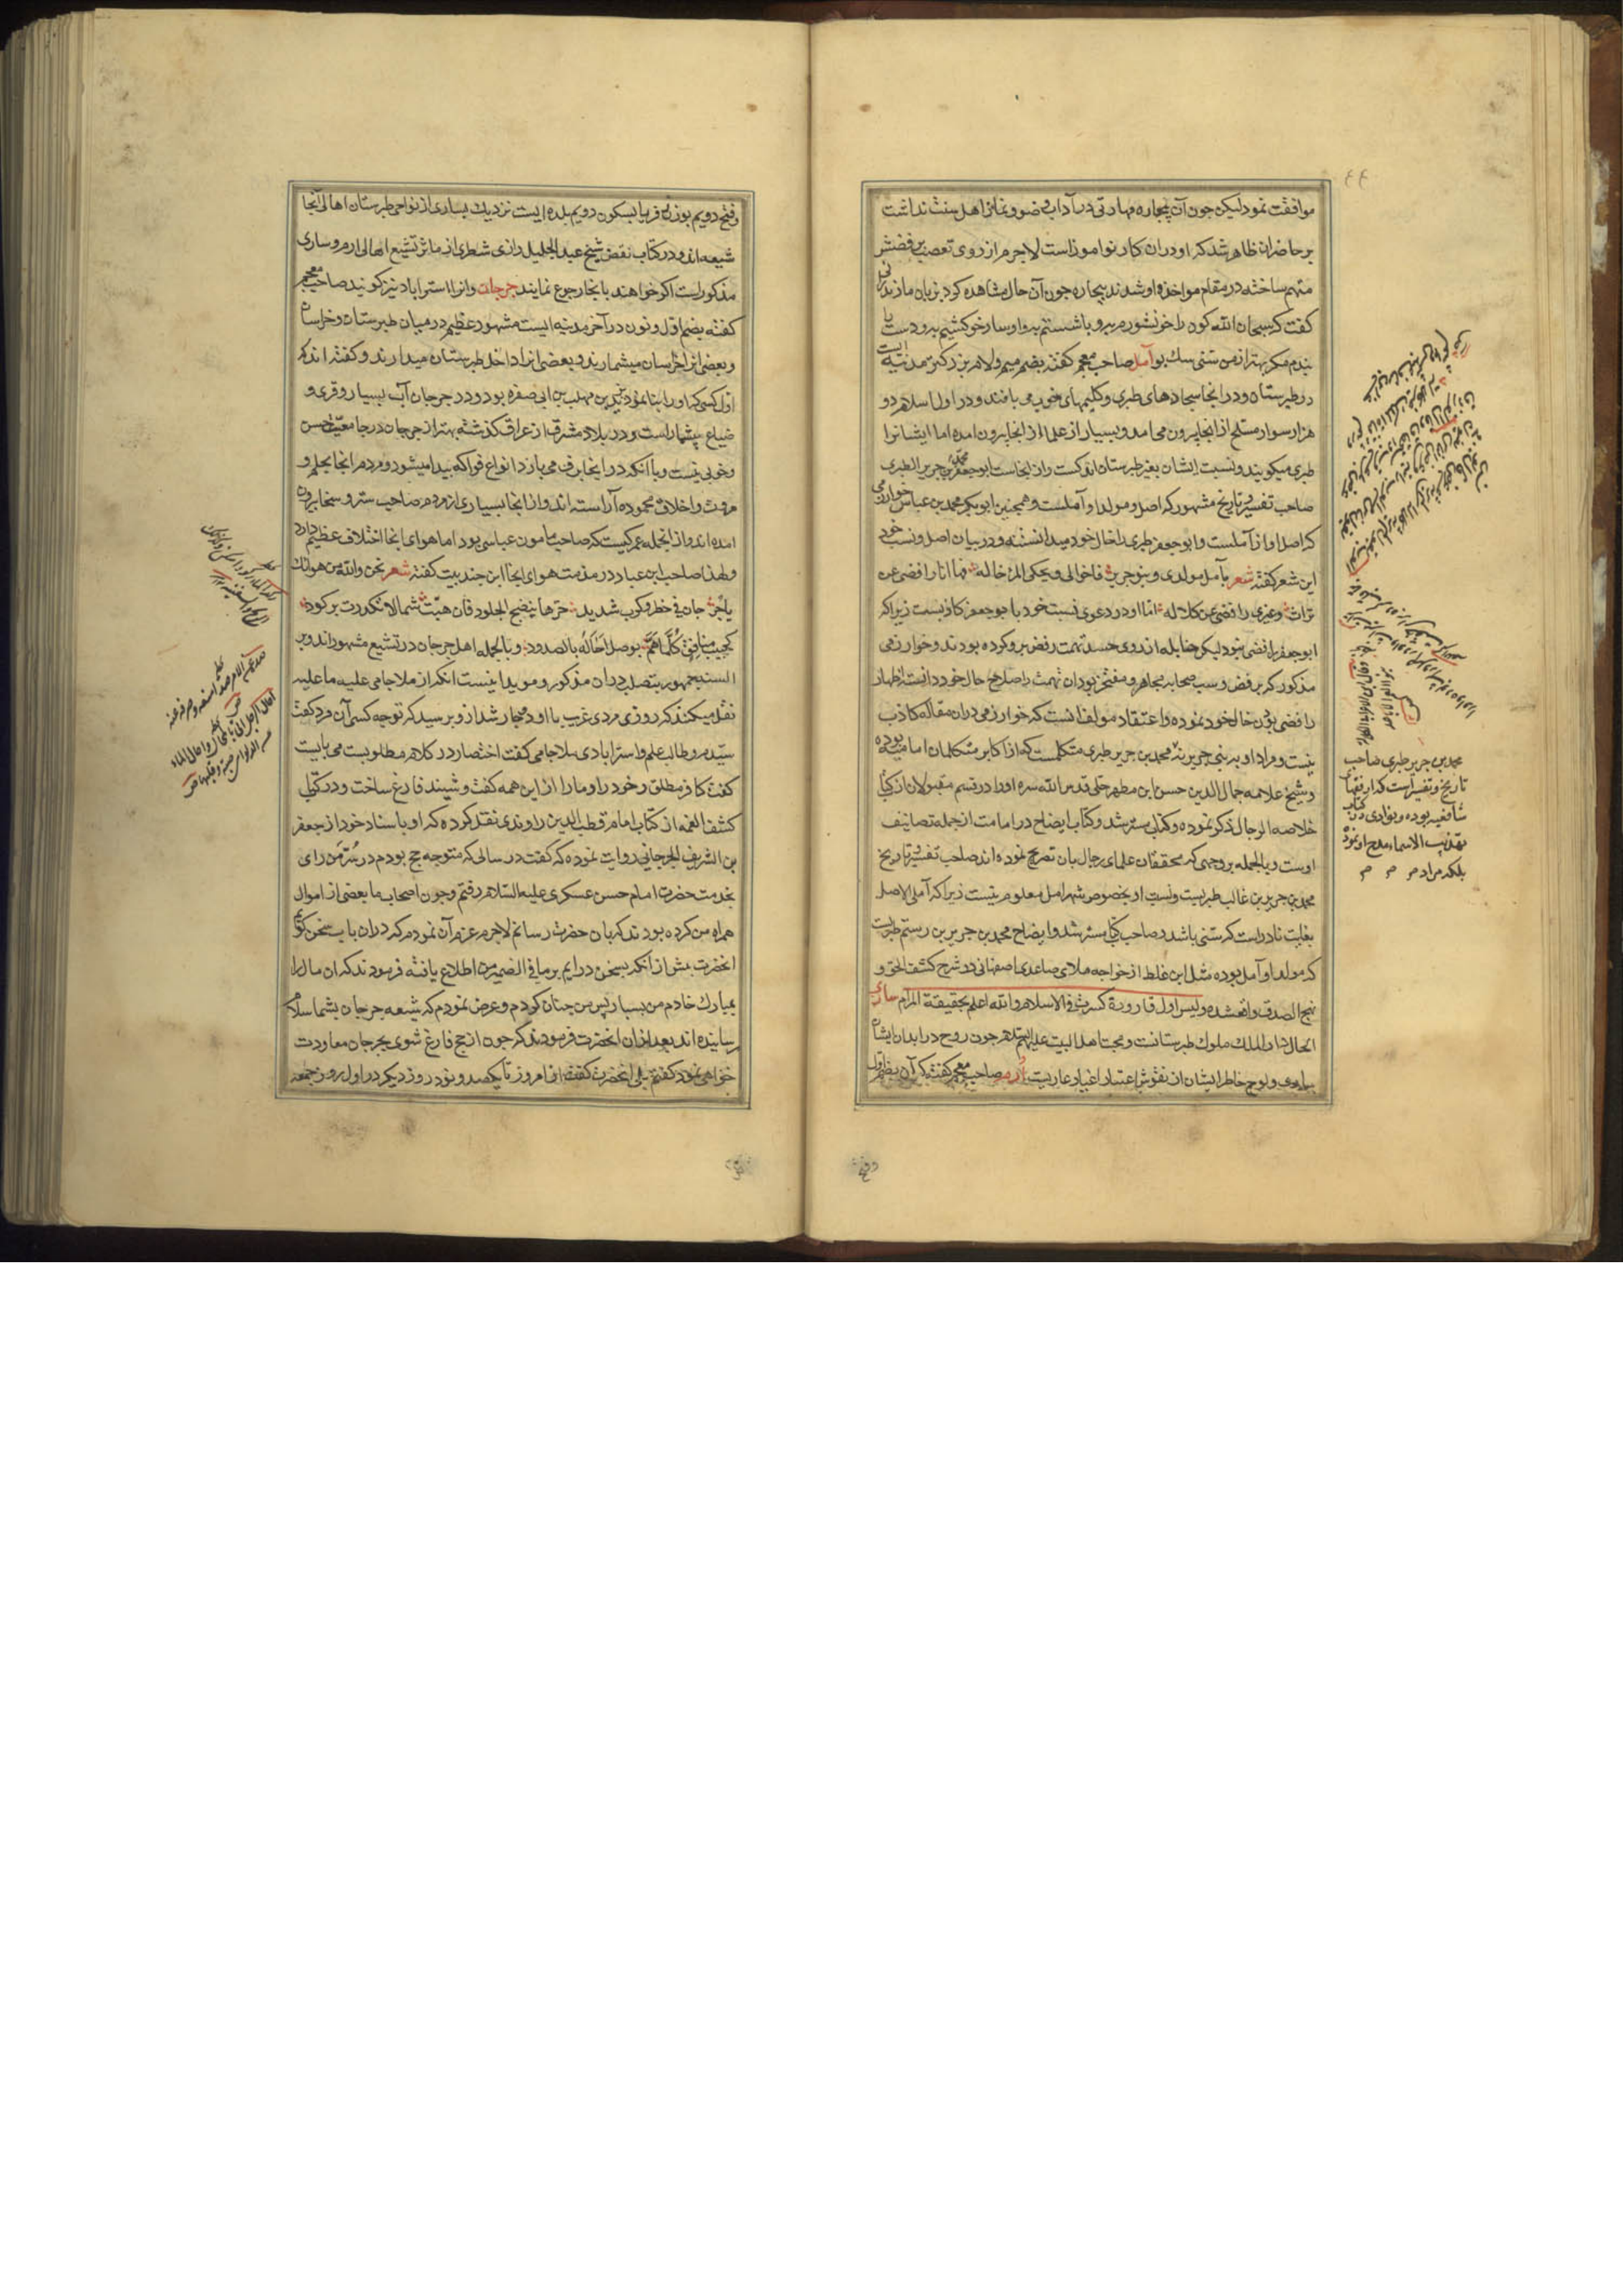 موافقت نمود لیکن چون آن بیچاره مهارتی در آداب وضو و نماز اهل سنت نداشت
بر حاضران ظاهر شد که او در ان کار نوآموز است لاجرم از روی تعصب برفضش
متهم ساخته در مقام مواخذه او شدند بیچاره چون آن حال مشاهده کرد بزبان مازندرانی
گفت که سبحان الله کون را خونشور مربرو با شستم
بندم مکر بهتر از من سنی سک بو آمل صاحب معجم گفته بضم میم و لام بزرگترین مدینه ایست
در طبرستان و در انجا سجادهای طبری و کلیمهای خوب می بافند و در اول اسلام دو
هزار سوار مسلح از انجا بیرون می امد و بسیار از علما از انجا بیرون امده اما ایشانرا
طبری میکویند و نسبت ایشان بغیر طبرستان اندکست و از انجاست ابو جعفر محمد بن جریر الطبری
صاحب تفسیر و تاریخ مشهور که اصل و مولد او آملست و همچنین ابو بکر محمد بن عباس خوارزمی
که اصل او از آملست و ابو جعفر طبری را خال خود میدانسته و در بیان اصل و نسب خود
این شعر گفته شعر بآمل مولدی و بنو جریر فاخوالی و یحکی المرء خاله فها انا رافضی عن
تراث و غیری رافضی عن کلاله اما او در دعوی نسبت خود با بو جعفر کاذبست زیرا که
ابو جعفر رافضی نبود لیکن حنابله از روی حسد تهمت رفض برو کرده بودند و خوارزمی
مذکور که برفض و سب صحابه مجاهر و مفتخر بود ان تهمت را صلاح حال خود دانسته اظهار
رافضی بودن خال خود نموده و اعتقاد مولف انست که خوارزمی دران مقاله کاذب
نیست و مراد او به بنی جریر نه محمد بن جریر طبری متکلمست که از اکابر متکلمان امامیه بوده
و شیخ علامه جمال الدین حسن ابن مطهر حلی قدس الله سره او را در قسم مقبولان از کتاب
خلاصه الرجال ذکر نموده و کتاب مسترشد و کتاب ایضاح در امامت از جمله تصانیف
اوست و بالجمله بروجهی که محققان علمای رجال بان تصریح نموده اند صاحب تفسیر و تاریخ
محمد بن جریر بن غالب طبریست و نسبت او بخصوص شهر امل معلوم نیست زیرا که آملی الاصل
بغایت نادر است که سنی باشد و صاحب کتاب مسترشد و ایضاح محمد بن جریر بن رستم طبریست
که مولد او آمل بوده مثل این غلط از خواجه ملای صاعدی اصفهانی در شرح کشف الحق و
نهج الصدق واقع شده و لیس اول قارورة کسرت فی الاسلام و الله اعلم بحقیقة المرام ساری
الحال دار الملک ملوک طبرستانست و محبت اهل البیت علیهم السلام چون روح در ابدان ایشان
ساری و لوح خاطر ایشان از نقوش اعتبار اغیار عاریست ارم صاحب معجم گفته که آن بضم اول
وفتح
محمد بن جریر طبری صاحب
تاریخ و تفسیر است که از فقهای
شافعیه بوده و نواوی در کتاب
تهذیب الاسماء مدح او نموده
بلکه مراد
وفتح دویم بوزن فریا بسکون دویم بلده ایست نزدیک بساری از نواحی طبرستان اهالی آنجا
شیعه اند و در کتاب نقض شیخ عبد الجلیل رازی شطری از ماثر تشیع اهالی ارم و ساری
مذکور است اکر خواهند بانجا رجوع نمایند جرجان و انرا استراباد نیز کویند صاحب معجم
گفته بضم اول و نون در آخر مدینه ایست مشهور عظیم در میان طبرستان و خراسان
و بعضی انرا از خراسان میشمارند و بعضی انرا داخل طبرستان میدارند و گفته اند که
اول کسی که او را بنا نمود یزید بن مهلب بن ابی صفره بود و در جرجان آب بسیار و قری و
ضیاع بیشمار است و در بلاد مشرق از عراق گذشته بهتر از جرجان در جامعیت حسن
و خوبی نیست و با انکه در انجا برف می بارد انواع فواکه پیدا میشود و مردم انجا بحلم و
مروت و اخلاق محموده آراسته اند و از انجا بسیاری از مردم صاحب ستر و سخا بیرون
امده اند و از انجمله عمرکیست که صاحب مامون عباسی بود اما هوای انجا اختلاف عظیم دارد
و لهذا صاحب ابن عباد در مذمت هوای انجا این چند بیت گفته شعر نحن و الله من هوائک
یا جرجان فی خطر و کرب شدید حرها ینضج الجلود فان هبت شمالا تکدرت برکود
کحبیب منافق کلما هم بوصل احاله بالصدود و بالجمله اهل جرجان در تشیع مشهور اند و بر
السنه جمهور بتصلب دران مذکور و موید اینست انکه از ملا جامی علیه ما علیه
نقل میکنند که روزی مردی غریب با او دچار شد از و پرسید که توجه کسی آن مرد گفت
سیدم و طالب علم و استرابادی ملا جامی گفت اختصار در کلام مطلوبست می بایست
گفت کافر مطلق و خود را و ما را از این همه گفت و شنید فارغ ساخت و در کتاب
کشف الغمه از کتاب امام قطب الدین راوندی نقل کرده که او باسناد خود از جعفر
بن الشریف الجرجانی روایت نموده که گفت در سالی که متوجه حج بودم در سر من رای
بخدمت حضرت امام حسن عسکری علیه السلام رفتم و چون اصحاب ما بعضی از اموال
همراه من کرده بودند که بان حضرت رسانم لاجرم عزم آن نمودم که دران باب سخن کویم
انحضرت پیش از انکه بسخن درایم بر ما فی الضمیر من اطلاع یافته فرمودند که ان مال را
بمبارک خادم من بسپار پس من چنان کردم و عرض نمودم که شیعه جرجان بشما سلام
رسانیده اند بعد از ان انحضرت فرمودند که چون از حج فارغ شوی بجرجان معاودت
خواهی نمود گفتم بلی انحضرت گفت از امروز تا یکصد و نود روز دیکر در اول روز جمعه